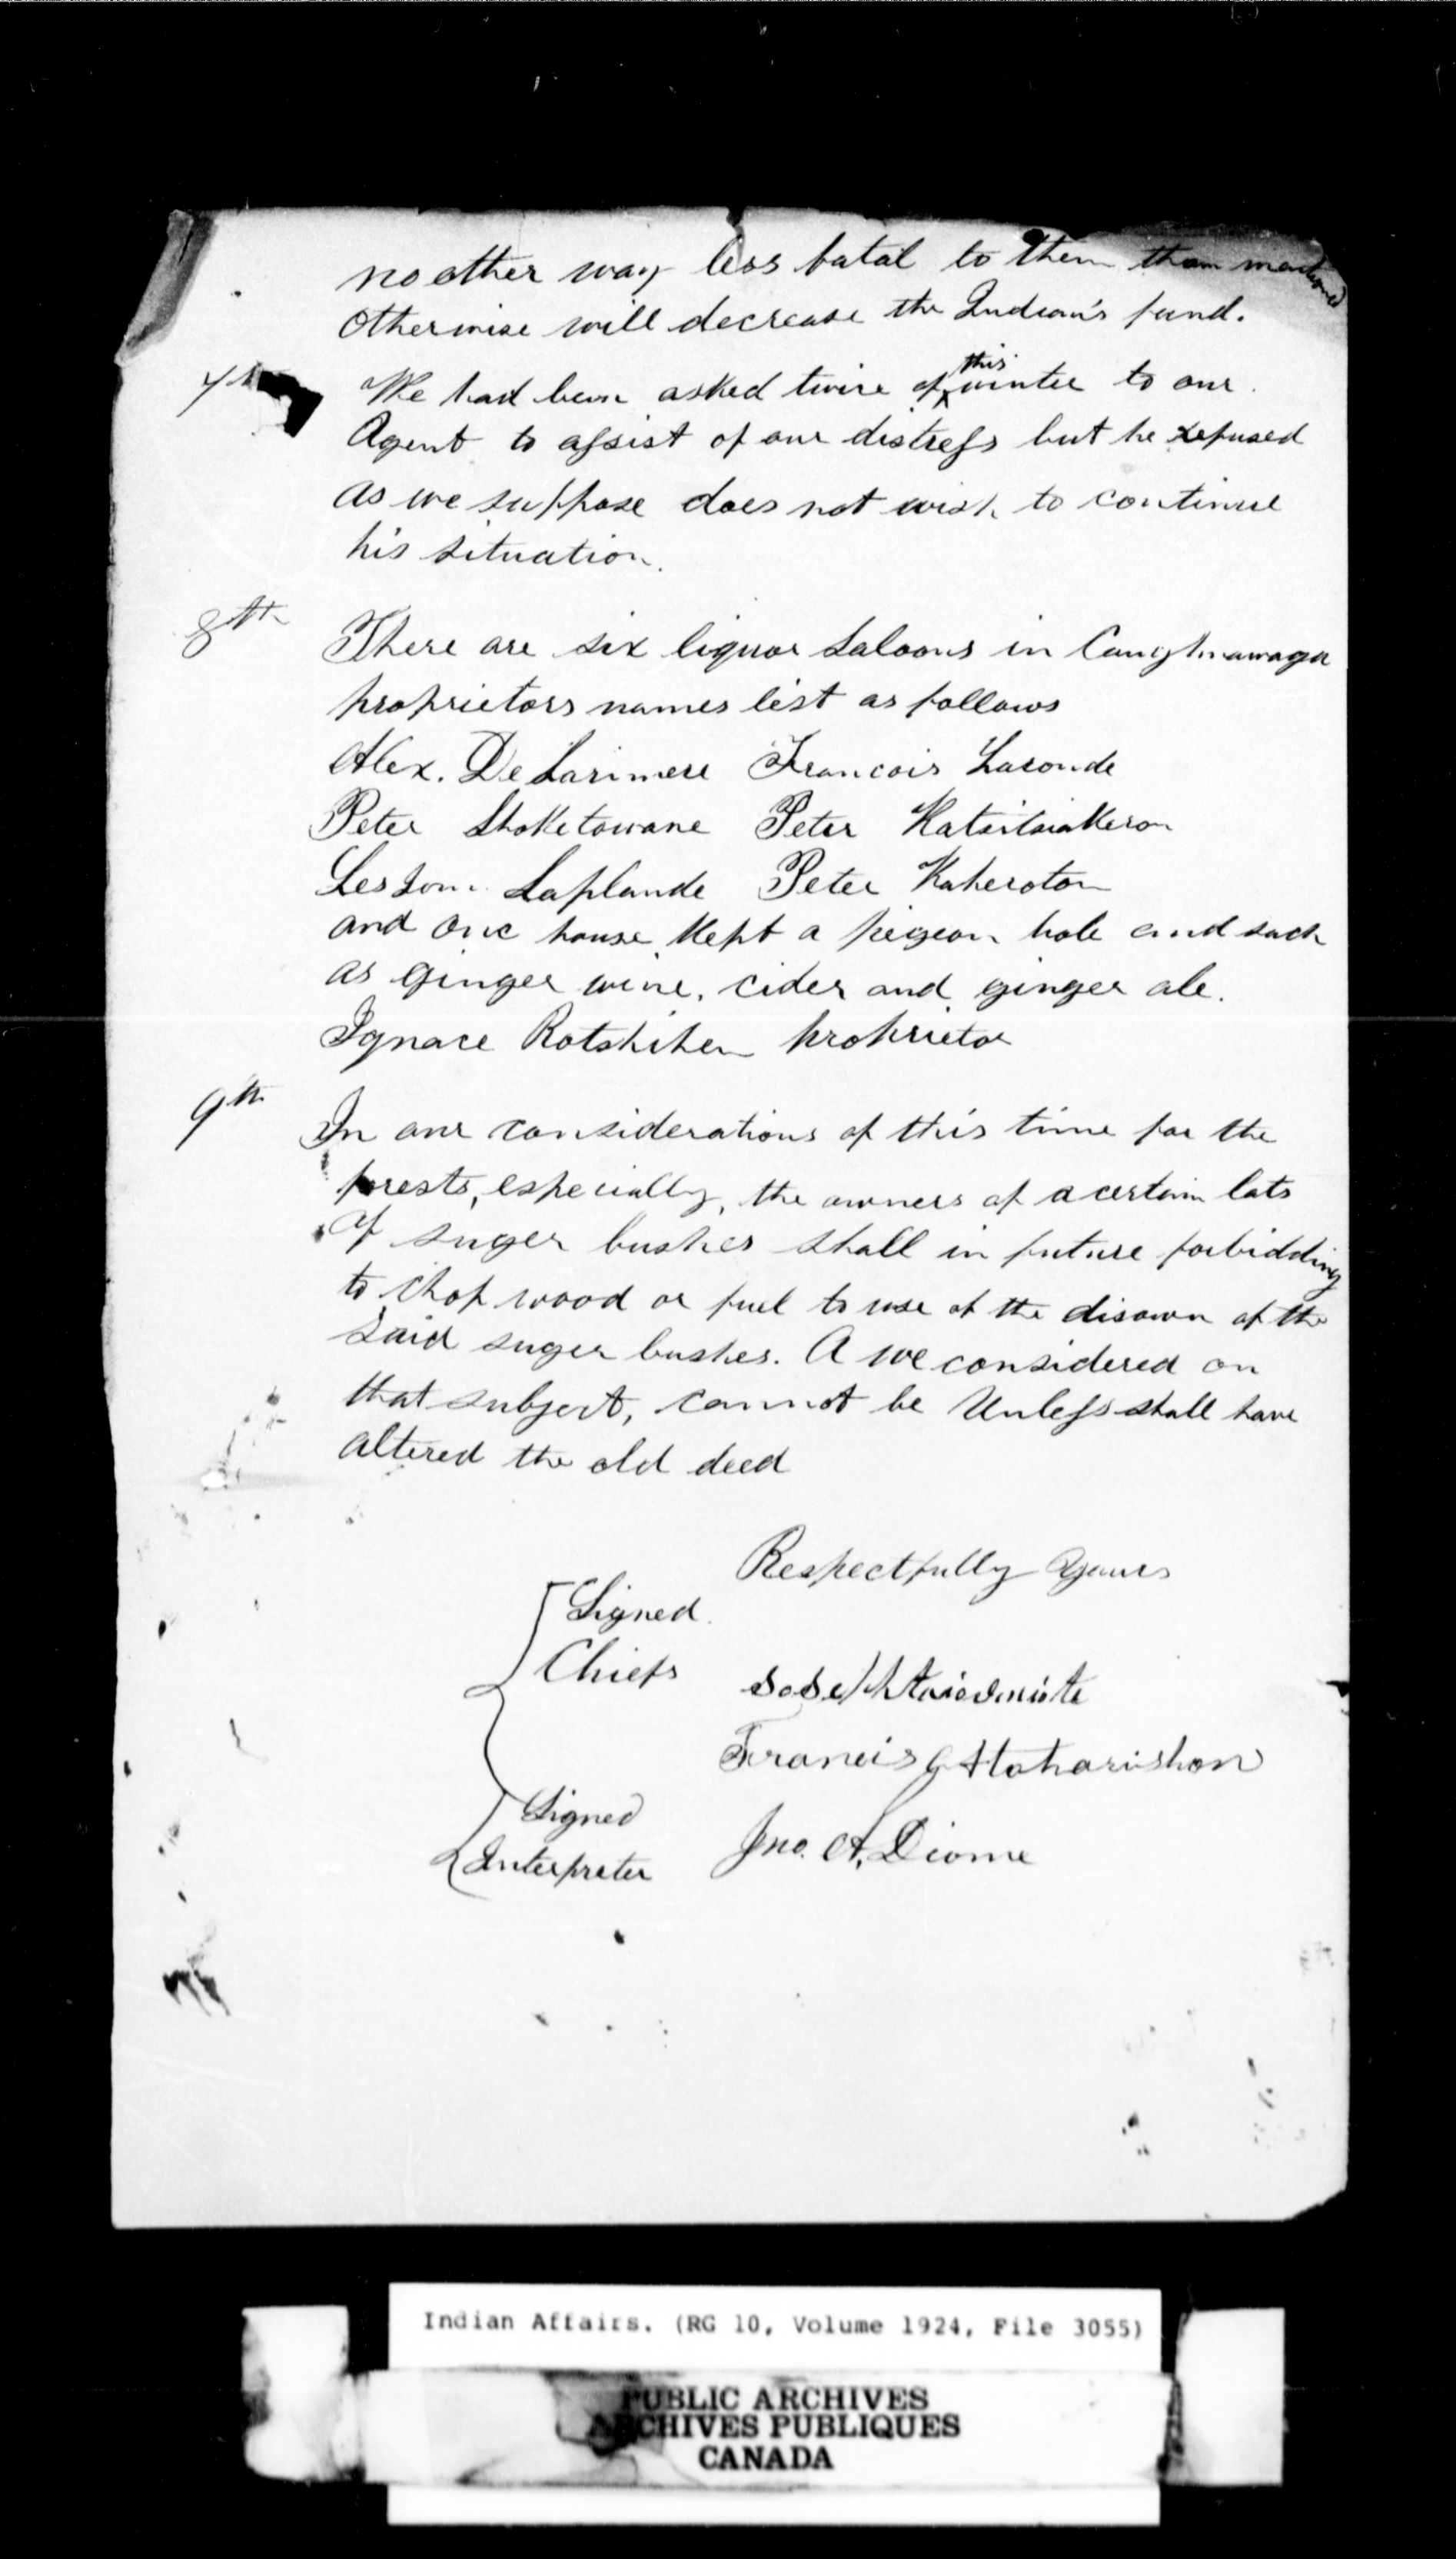 no other way less fatal to them than mentioned
otherwise will decrease the Indian's fund.
7th We had been asked twice of this winter to our
Agent to assist of our distress but he refused
as we suppose does not wish to continue
his situation.
8th There are six liquor saloons in Caughnawaga
proprietors names list as follows
Alex. DeLarimere Francois Laronde
Peter Shoketowane Peter Katsitsiakeron
Laplande Peter Kaheroton
and one house kept a pigeon hole and such
as ginger wine, cider and ginger ale.
Ignace Rotshihen proprietor
9th In our considerations of this time for the
forests, especially, the owners of a certain lots
of suger bushes shall in future forbidding
to chop wood or fuel to use of the disown of the
said suger bushes. A we considered on
that subject, cannot be Unless shall have
altered the old deed
Respectfully Yours
Signed
Chiefs
Francis Hatharishon
Signed
Interpreter Jno. A. Diome
Indian Affairs. (RG 10, Volume 1924, File 3055)
PUBLIC ARCHIVES
ARCHIVES PUBLIQUES
CANADA